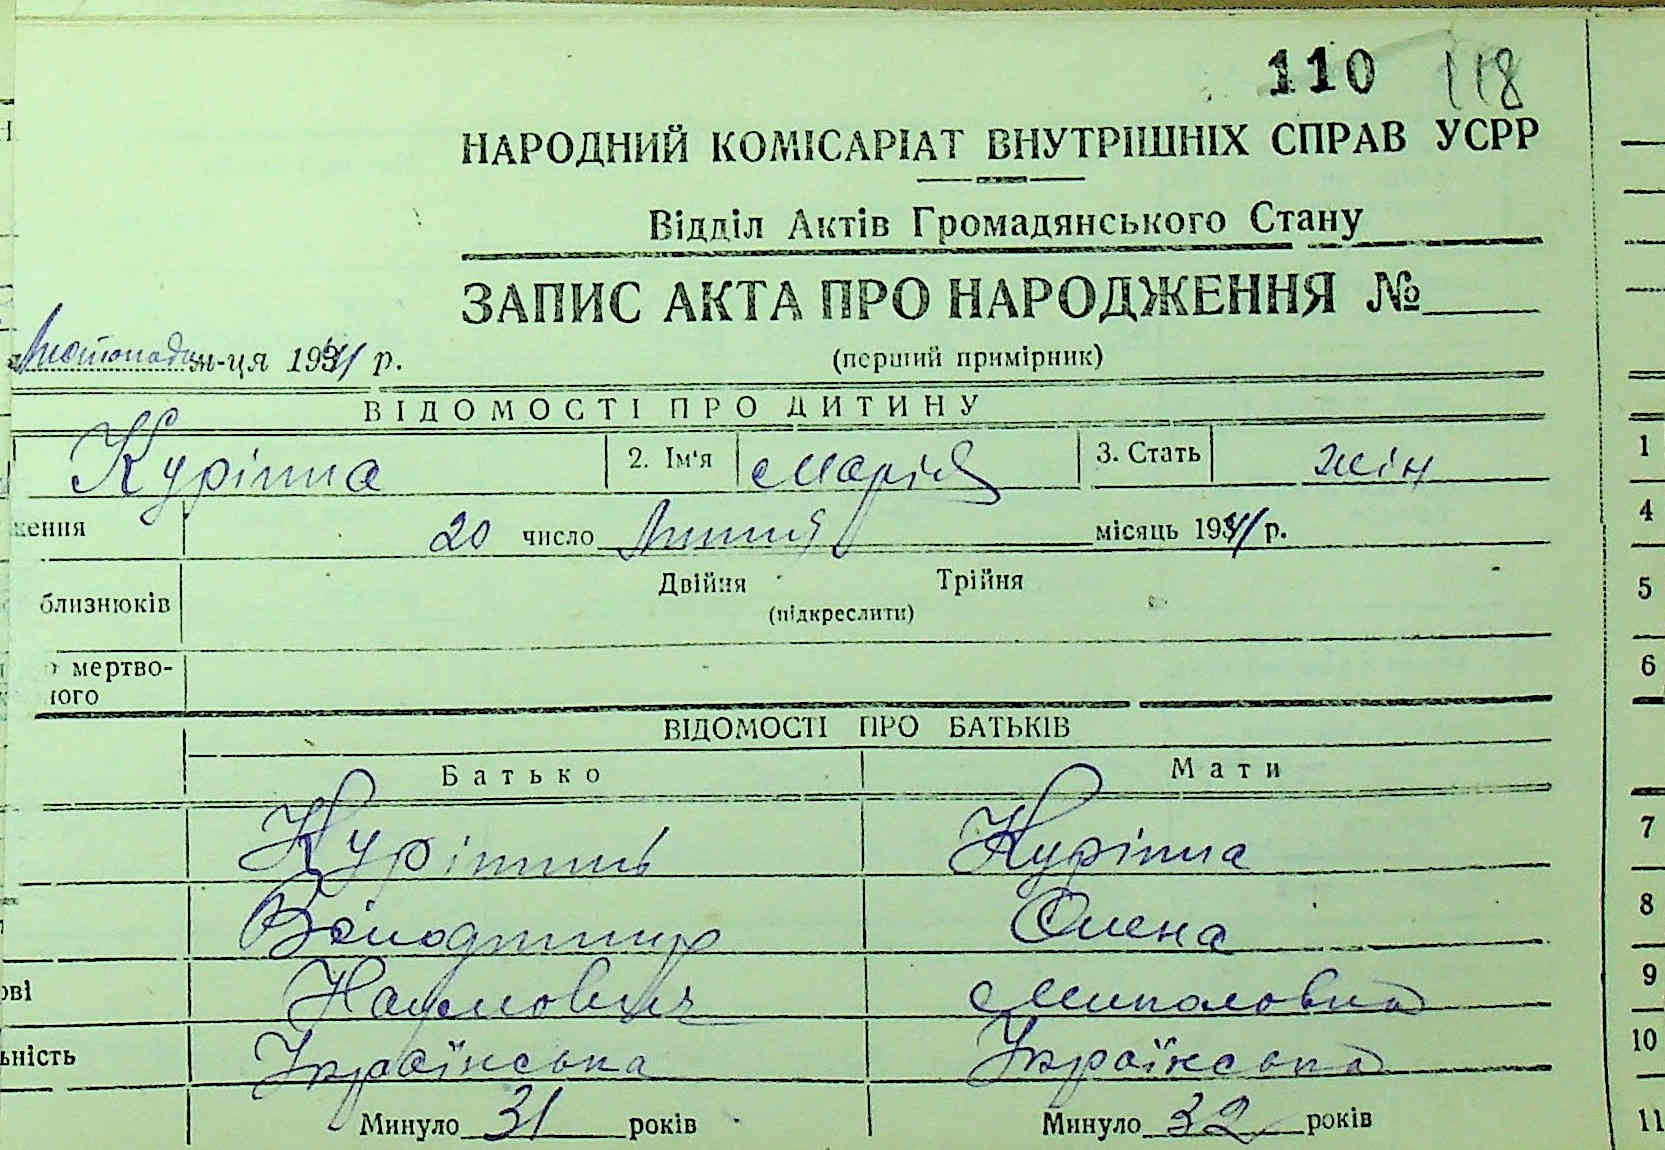 110 118
НАРОДНИЙ КОМІСАРІАТ ВНУТРІШНІХ СПРАВ УСРР
Відділ Актів Громадянського Стану
ЗАПИС АКТА ПРО НАРОДЖЕННЯ №
Листопада м-ця 1941 р.
(перший примірник)
ВІДОМОСТІ ПРО ДИТИНУ
Куріпна 2. Ім'я Марія 3. Стать жін
1
ження 20 число Липня місяць 1941 р.
4
близнюків Двійня Трійня
(підкреслити)
5
мертво-
ного
6
ВІДОМОСТІ ПРО БАТЬКІВ
Батько Мати
Куріпна
7
Володимир Олена
8
ові Наумович Миколовна
9
ьність Українська Українська
10
Минуло 31 років Минуло 32 років
11